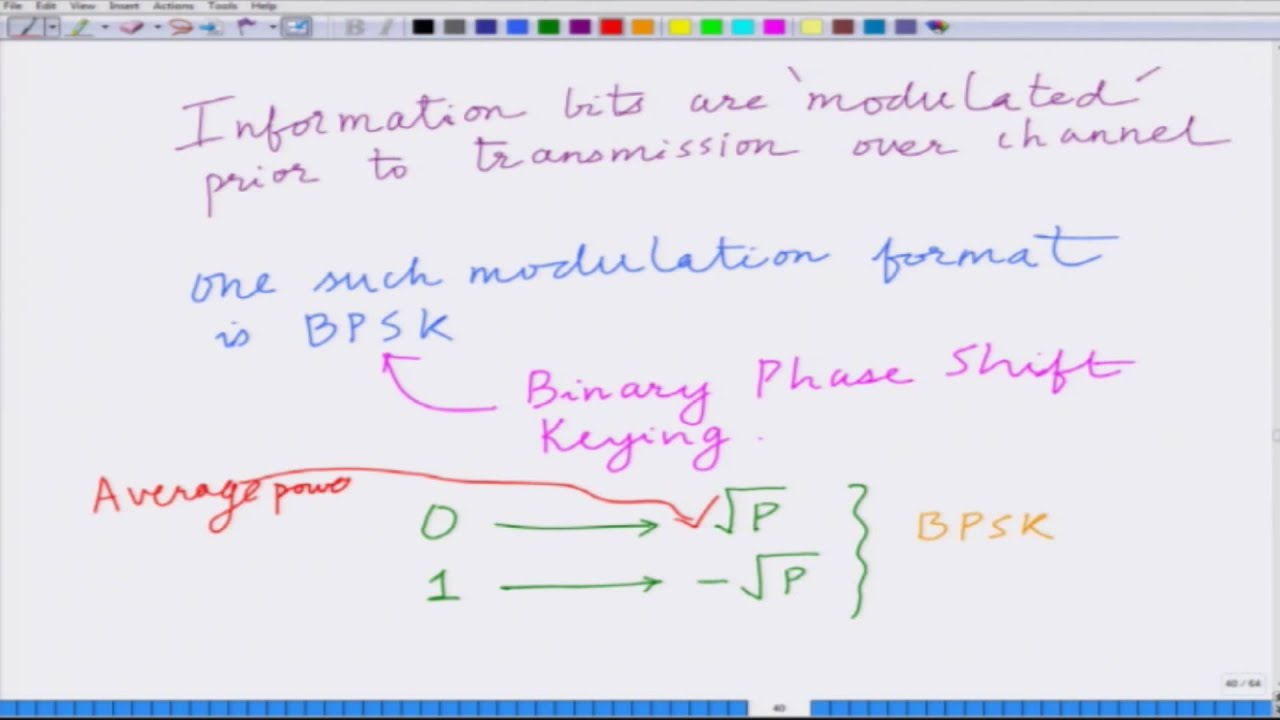 File Edit View Insert Actions Tools Help
Information bits are 'modulated'
prior to transmission over channel
one such modulation format
is BPSK
Binary Phase Shift
Keying.
Average power
0 → √P
1 → -√P
BPSK
40 / 64
40